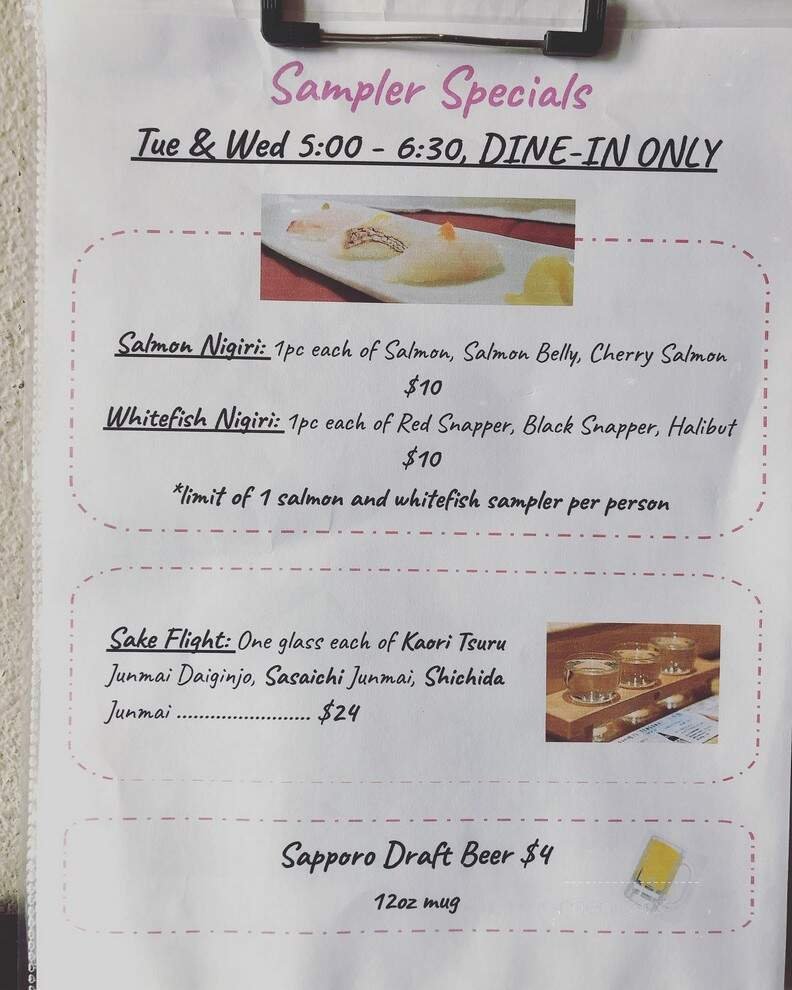 Sampler Specials
Tue & Wed 5:00 - 6:30, DINE-IN ONLY
Salmon Nigiri: 1pc each of Salmon, Salmon Belly, Cherry Salmon
$10
Whitefish Nigiri: 1pc each of Red Snapper, Black Snapper, Halibut
$10
*limit of 1 salmon and whitefish sampler per person
Sake Flight: One glass each of Kaori Tsuru
Junmai Daiginjo, Sasaichi Junmai, Shichida
Junmai ........................ $24
Sapporo Draft Beer $4
12oz mug